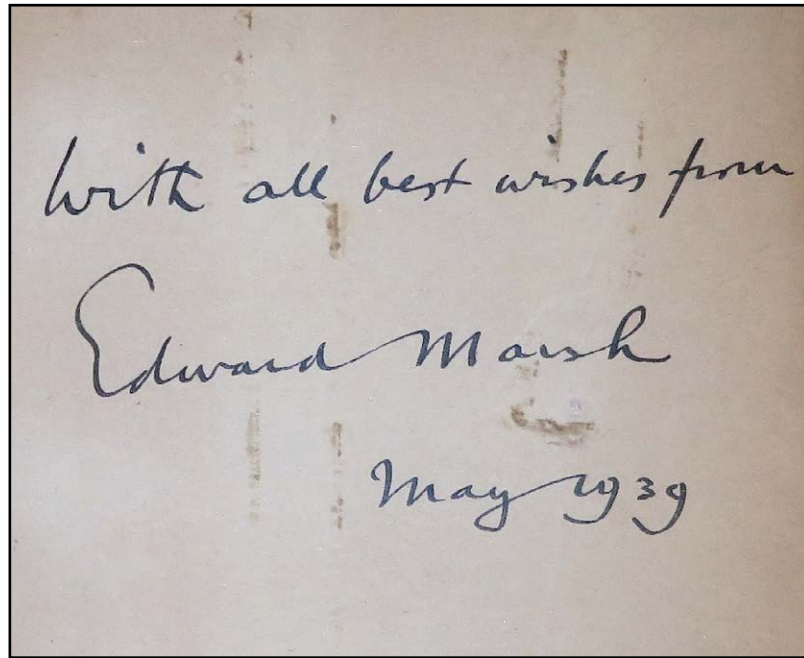 With all best wishes from
Edward Marsh
May 1939